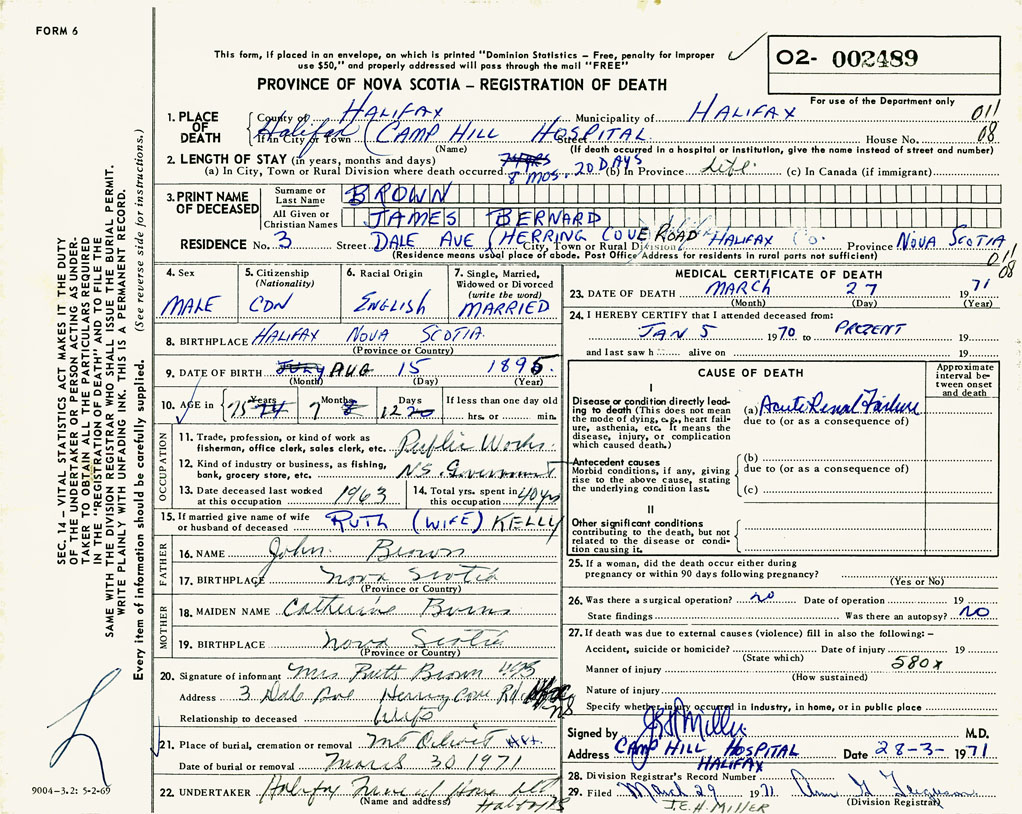 FORM 6
This form, if placed in an envelope, on which is printed "Dominion Statistics – Free, penalty for improper
use $50," and properly addressed will pass through the mail "FREE"
O2- 002489
PROVINCE OF NOVA SCOTIA – REGISTRATION OF DEATH
For use of the Department only
1. PLACE OF DEATH County of HALIFAX Municipality of HALIFAX 011
If in City or Town Halifax (CAMP HILL HOSPITAL Street House No. 08
(Name) (If death occurred in a hospital or institution, give the name instead of street and number)
2. LENGTH OF STAY (in years, months and days)
(a) In City, Town or Rural Division where death occurred 8 MOS. 20 DAYS (b) In Province Life. (c) In Canada (if immigrant)
3. PRINT NAME OF DECEASED Surname or Last Name BROWN
All Given or Christian Names JAMES BERNARD
RESIDENCE No. 3 Street DALE AVE HERRING COVE ROAD HALIFAX CO. Province NOVA SCOTIA
City, Town or Rural Division
(Residence means usual place of abode. Post Office Address for residents in rural parts not sufficient) 011
08
4. Sex MALE
5. Citizenship (Nationality) CDN
6. Racial Origin ENGLISH
7. Single, Married, Widowed or Divorced (write the word) MARRIED
8. BIRTHPLACE HALIFAX NOVA SCOTIA
(Province or Country)
9. DATE OF BIRTH JULY AUG 15 1895
(Month) (Day) (Year)
10. AGE in 75 74 Years 7 8 Months 12 20 Days If less than one day old
hrs. or min.
OCCUPATION
11. Trade, profession, or kind of work as
fisherman, office clerk, sales clerk, etc. Public Works.
12. Kind of industry or business, as fishing,
bank, grocery store, etc. N.S. Government
13. Date deceased last worked at this occupation 1963
14. Total yrs. spent in this occupation 40 yrs
15. If married give name of wife
or husband of deceased RUTH (WIFE) KELLY
FATHER
16. NAME John Brown
17. BIRTHPLACE Nova Scotia
(Province or Country)
MOTHER
18. MAIDEN NAME Catherine Burns
19. BIRTHPLACE Nova Scotia
(Province or Country)
20. Signature of informant Mrs Ruth Brown
Address 3 Dale Ave Herring Cove Rd
NS
Relationship to deceased Wife
21. Place of burial, cremation or removal Mt Olivet Hfx.
Date of burial or removal March 30 1971
22. UNDERTAKER Halifax Funeral Home
(Name and address) Halifax NS
MEDICAL CERTIFICATE OF DEATH
23. DATE OF DEATH MARCH 27 1971
(Month) (Day) (Year)
24. I HEREBY CERTIFY that I attended deceased from:
JAN 5 1970 to PREZENT 19
and last saw h alive on 19
CAUSE OF DEATH
Approximate interval between onset and death
I
Disease or condition directly leading to death (This does not mean the mode of dying, e.g., heart failure, asthenia, etc. It means the disease, injury, or complication which caused death.)
(a) Acute Renal Failure
due to (or as a consequence of)
Antecedent causes
Morbid conditions, if any, giving rise to the above cause, stating the underlying condition last.
(b)
due to (or as a consequence of)
(c)
II
Other significant conditions
contributing to the death, but not related to the disease or condition causing it.
25. If a woman, did the death occur either during
pregnancy or within 90 days following pregnancy?
(Yes or No)
26. Was there a surgical operation? NO Date of operation 19
State findings Was there an autopsy? NO
27. If death was due to external causes (violence) fill in also the following: –
Accident, suicide or homicide? Date of injury 19
(State which)
Manner of injury 580x
(How sustained)
Nature of injury
Specify whether injury occurred in industry, in home, or in public place
Signed by JEH Miller M.D.
Address CAMP HILL HOSPITAL Date 28-3- 1971
HALIFAX
28. Division Registrar's Record Number
29. Filed March 29 1971 Ann G Ferguson
J.E.H. MILLER (Division Registrar)
SEC. 14 – VITAL STATISTICS ACT MAKES IT THE DUTY
OF THE UNDERTAKER OR PERSON ACTING AS UNDER-
TAKER TO OBTAIN ALL THE PARTICULARS REQUIRED
IN THE "REGISTRATION OF DEATH" AND TO FILE THE
SAME WITH THE DIVISION REGISTRAR WHO SHALL ISSUE THE BURIAL PERMIT.
WRITE PLAINLY WITH UNFADING INK. THIS IS A PERMANENT RECORD.
Every item of information should be carefully supplied. (See reverse side for instructions.)
9004-3.2: 5-2-69